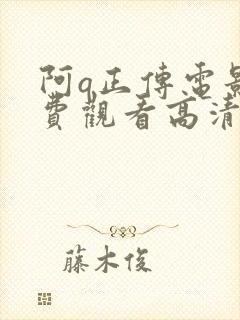 阿q正傳電影
費觀看高清
藤木俊